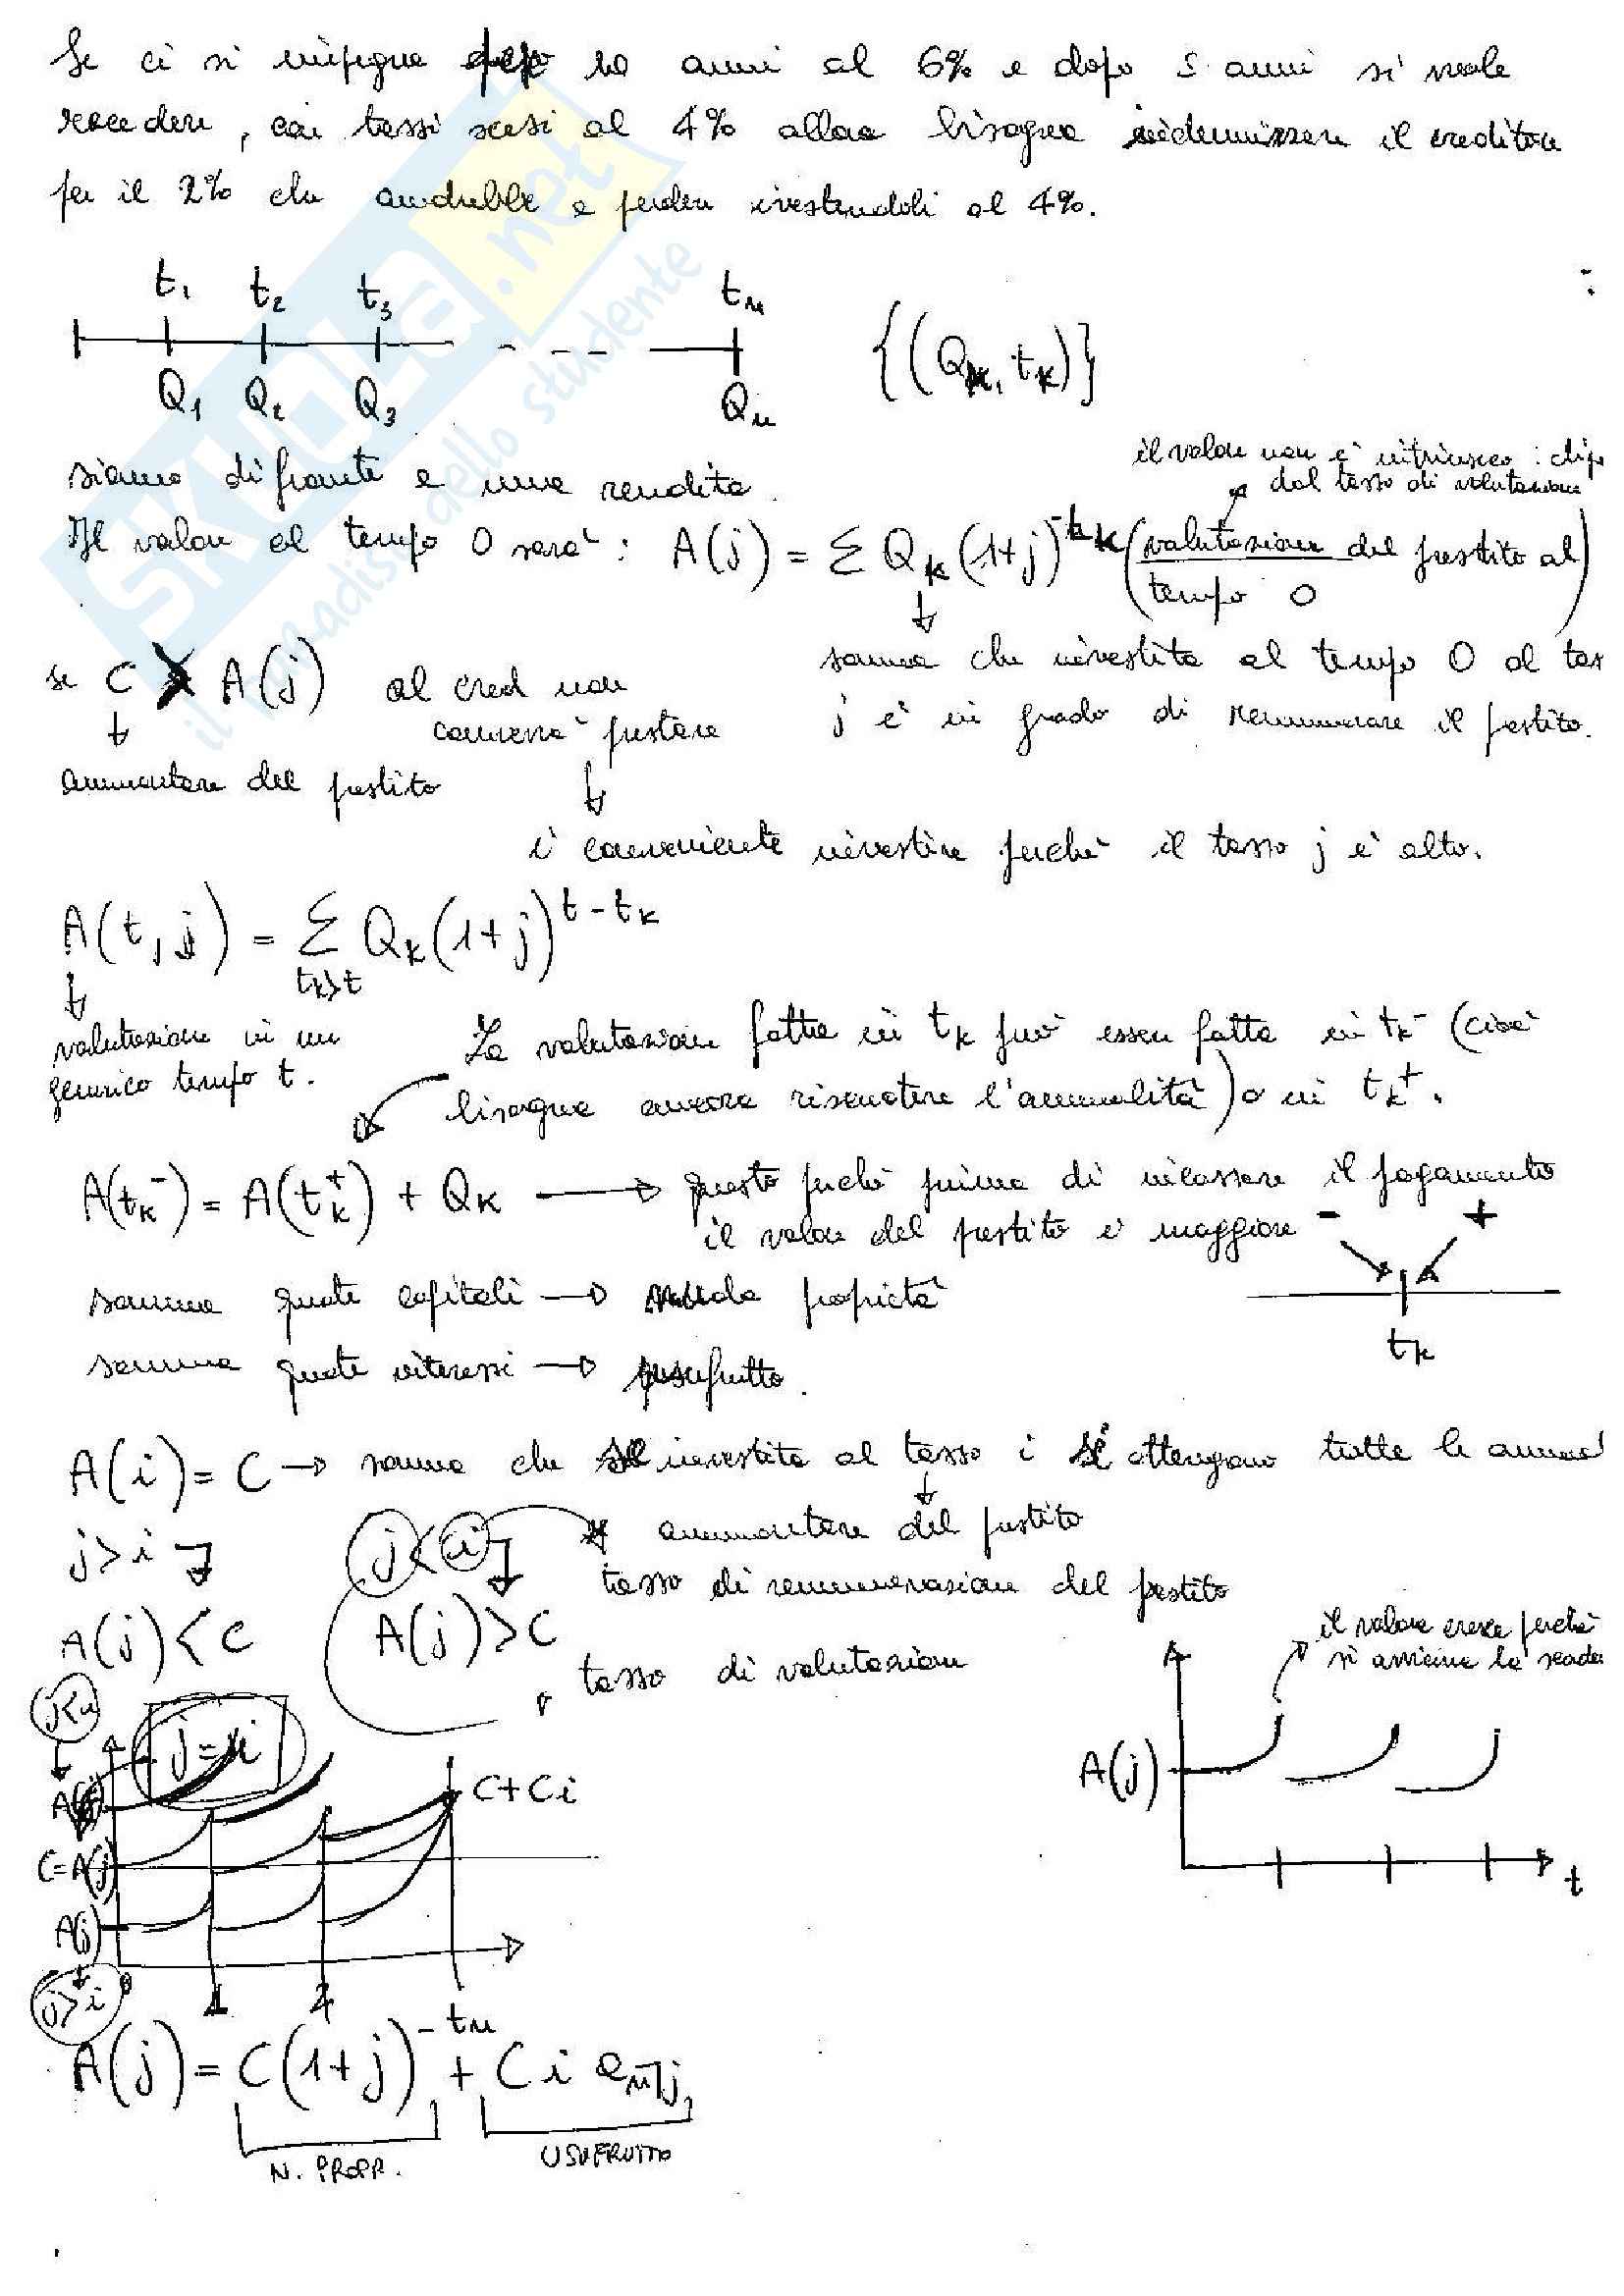 Se ci si impegna dopo 10 anni al 6% e dopo 5 anni si vuole
recedere, coi tassi scesi al 4% allora bisogna indennizzare il creditore
per il 2% che andrebbe a perdere investendoli al 4%.
t1 t2 t3 tn
Q1 Q2 Q3 Qn
{(Qk, tk)}
siamo di fronte a una rendita.
il valore non è intrinseco: dip
dal tasso di valutazione
Il valore al tempo 0 sarà: A(j) = Σ Qk (1+j)^-tk (valutazione del prestito al
tempo 0)
somma che investita al tempo 0 al tas
j è in grado di remunerare il prestito.
se C > A(j) al cred non
converrà prestare
ammontare del prestito
è conveniente investire perché il tasso j è alto.
A(t,j) = Σ Qk(1+j)^t-tk
tk>t
valutazione in un
generico tempo t.
La valutazione fatta in tk può essere fatta in tk- (cioè
bisogna ancora riscuotere l'annualità) o in tk+.
A(tk-) = A(tk+) + Qk → questo perché prima di incassare il pagamento
il valore del prestito è maggiore
- +
tk
somma quote capitali → nuda proprietà
somma quote interessi → usufrutto.
A(i) = C → somma che se investita al tasso i si ottengono tutte le annual
ammontare del prestito
j>i j<i
tasso di remunerazione del prestito
A(j) < C A(j) > C
tasso di valutazione
il valore cresce perché
si avvicina la scade
A(j)
t
j<i
j=i
A(j)
C+Ci
C=A(j)
A(j)
j>i
0 1 2 tn
A(j) = C(1+j)^-tn + C i a n̅|j
N. PROPR. USUFRUTTO
SKUOLA.net
il paradiso dello studente